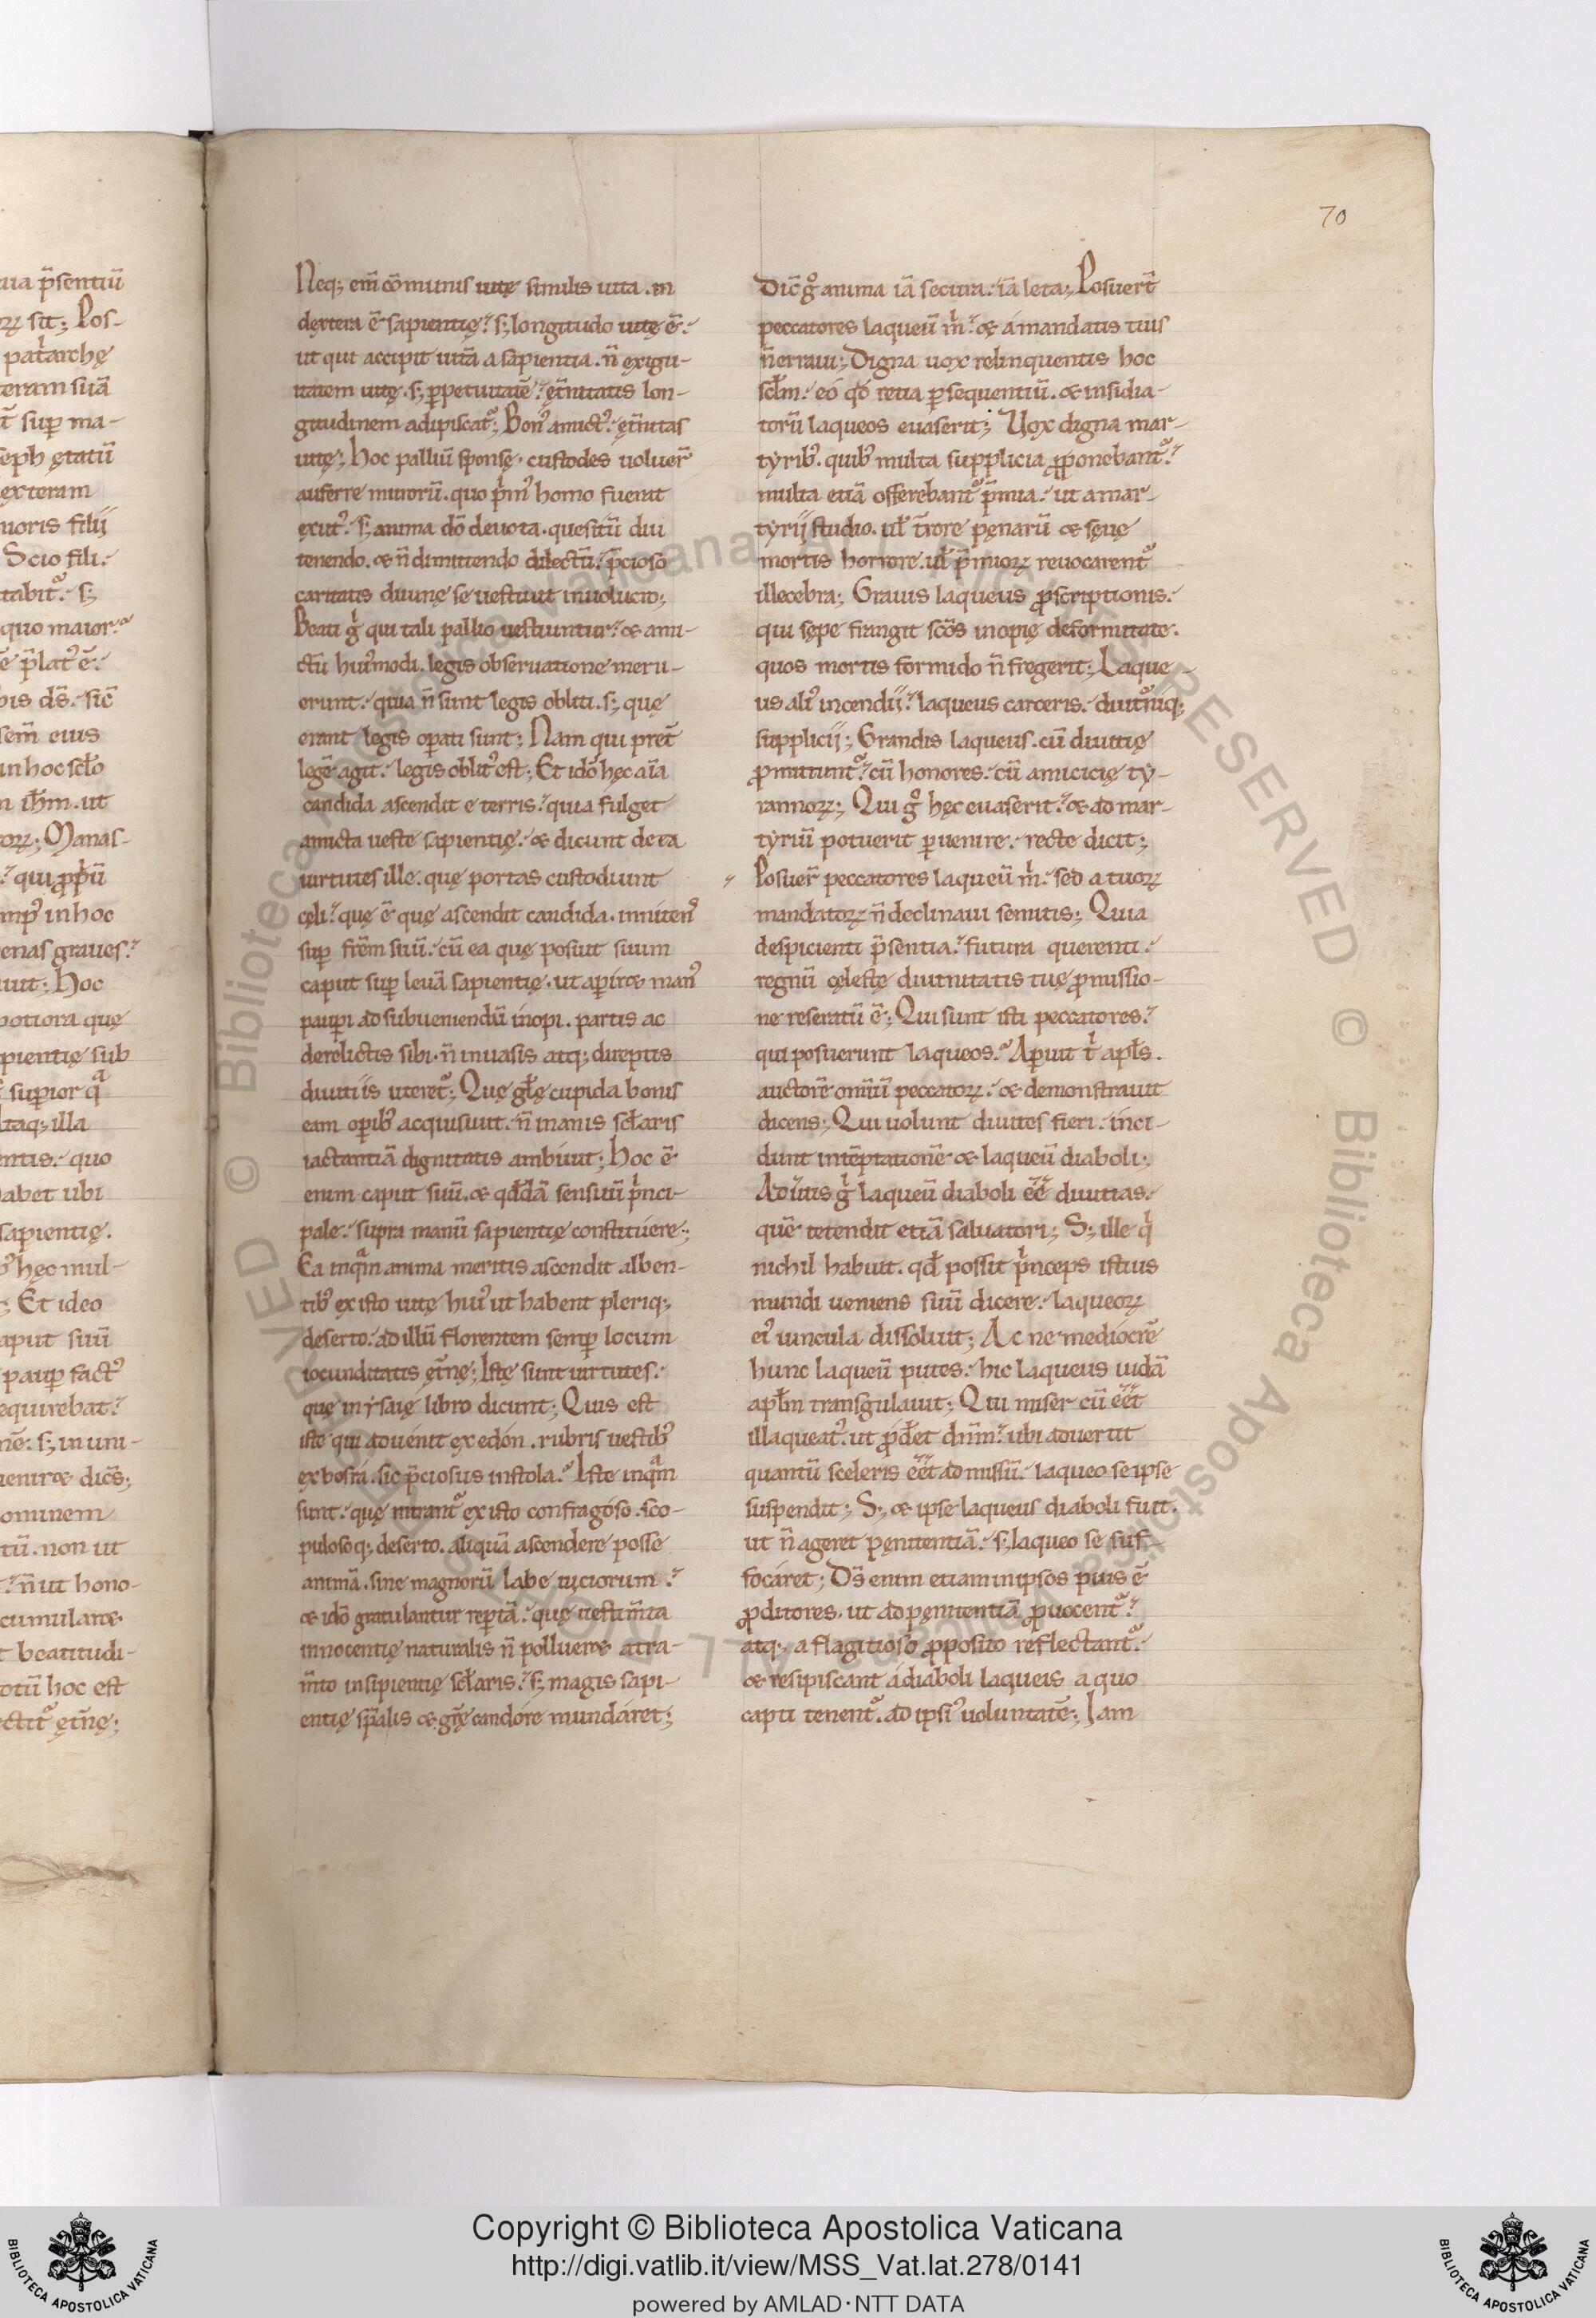 70
Neq; em̄ cō munis uitę similis uita . in
dęxtera ē sapientię. s; longitudo uitę ē.
ut qui accipit uitā a sapientia . n̄ exigu-
itatem uitę . s; ꝑpetuitatē. ęt̄nitatis lon-
gitudinem adipiscat᷑; Bon᷒ amict᷒. ęt̄nitas
uitę; hoc palliū sponsę . custodes uoluer̄
auferre muroꝛū . quo pⁱm᷒ homo fuerat
exut᷒. s; anima dō deuota . quesitū diu
tenendo . & n̄ dimittendo dilectū. p̄cioso
caritatis diuinę se uestiuit inuolucro;
Beati gⁱ qui tali pallio uestiuntur. & ami-
ctū hui᷒modi . legis obseruatione meru-
erunt. quia n̄ sunt legis obliti . s; quę
erant legis oꝑati sunt; Nam qui pret̄
legē agit. legis oblit᷒ est; Et idō hęc aīa
candida ascendit e terris. quia fulget
amicta ueste sapientię. & dicunt de ea
uirtutes ille . quę portas custodiunt
cęli. quę ē quę ascendit candida . innitens
suꝑ frēm suū. cū ea quę posuit suum
caput suꝑ leuā sapientię . ut aꝑiret man᷒
pauꝑi ad subueniendū inopi . partis ac
derelictis sibi . n̄ inuasis atq; direptis
diuitiis uteret᷑; Quę gl̄ę cupida bonis
eam oꝑib᷒ acquisiuit. n̄ inanis scl̄aris
iactantiā dignitatis ambiuit; hoc ē
enim caput suū . & qd̄dā sensuū pⁱnci-
pale. supra manū sapientię constituere;
Ea inqᵃm anima meritis ascendit alben-
tib᷒ ex isto uitę hui᷒ ut habent pleriq;
deserto. ad illū florentem semꝑ locum
iocunditatis ęt̄nę; Istę sunt uirtutes.
quę in ysaię libro dicunt; Quis est
iste qui aduenit ex edón . rubris uestib᷒
ex bosrá . sic p̄ciosus instola. Iste inqᵃm
sunt. quę mirant᷑ ex isto confragóso . sco-
puloso q; deserto . aliquā ascendere posse
animā . sine magnorū labe uiciorum.
& idō gratulantur reꝑtā. quę uestim̄ta
innocentię naturalis n̄ polluerat atra-
m̄to insipientię scl̄aris. s; magis sapi-
entię sp̄alis & grę̄ candóre mundáret;
Dic̄ gͦ anima iā secura. iā leta; Posuer̄t
peccatores laqueū mⁱ. & á mandatis tuis
n̄ erraui; Digna uox relinquentis hoc
scl̄m. eó qd́ retia ꝑsequentiū . & insidia-
torū laqueos euaserit; Uox digna mar-
tyrib᷒ . quib᷒ multa supplicia ꝓponebant᷑.
multa etiā offerebant᷑ p̄mia. ut a mar-
tyrij studio . ul̄ t̄rore pęnarū & sęuę
mortis horrore . ul̄ p̄mioꝝ reuocarent᷑
illecebra; Grauis laqueus ꝓscriptionis.
qui sępe frangit scōs inopię deformitate.
quos mortis formido n̄ fregerit; Laque-
us ali᷒ incendij. laqueus carceris. diut᷑niq;
supplicij; Grandis laqueus . cū diuitię
ꝓmittunt᷑. cū honores. cū amicicię ty-
rannoꝝ; Qui gͦ hęc euaserit. & ad mar-
tyriū potuerit ꝑuenire. recte dicit;
Posuer̄ peccatores laqueū mⁱ. sed a tuoꝝ
mandatoꝝ n̄ declinaui semitis; Quia
despicienti p̄sentia. futura querenti.
regnū cęlestę diuinitatis tuę ꝓmissio-
ne reseratū ē; Qui sunt isti peccatores.
qui posuerunt laqueos. Aꝑuit tⁱ apl̄s.
auctorē omīū peccatoꝝ. & demonstrauit
dicens; Qui uolunt diuites fieri. inci-
dunt intēptationē & laqueū diaboli;
Aduertis gⁱ laqueū diaboli eē diuitias.
quē tetendit etiā saluatori; S; ille qⁱ
nichil habuit . qd̄ possit pⁱnceps istius
mundi ueniens suū dicere. laqueoꝝ
ei᷒ uincula dissoluit; Ac ne mediocrē
hunc laqueū putes. hic laqueus iudā
apl̄m transgulauit; Qui miser cū eēt
illaqueat᷒ . ut ꝓd̄et dn̄m. ubi aduertit
quantū sceleris eēt admissū. laqueo se ipse
suspendit; S; & ipse laqueus diaboli fuit.
ut n̄ ageret pęnitentiā. s; laqueo se suf-
focáret; Ds̄ enim etiam in ipsos pius ē
ꝓditores . ut ad pęnitentiā ꝓuocent᷑.
atq; a flagitioso ꝓposito reflectant᷑.
& resipiscant á diaboli laqueis a quo
capti tenent᷑ . ad ipsi᷒ uoluntatē; Iam
Copyright © Biblioteca Apostolica Vaticana
http://digi.vatlib.it/view/MSS_Vat.lat.278/0141
powered by AMLAD·NTT DATA
BIBLIOTECA APOSTOLICA VATICANA
BIBLIOTECA APOSTOLICA VATICANA